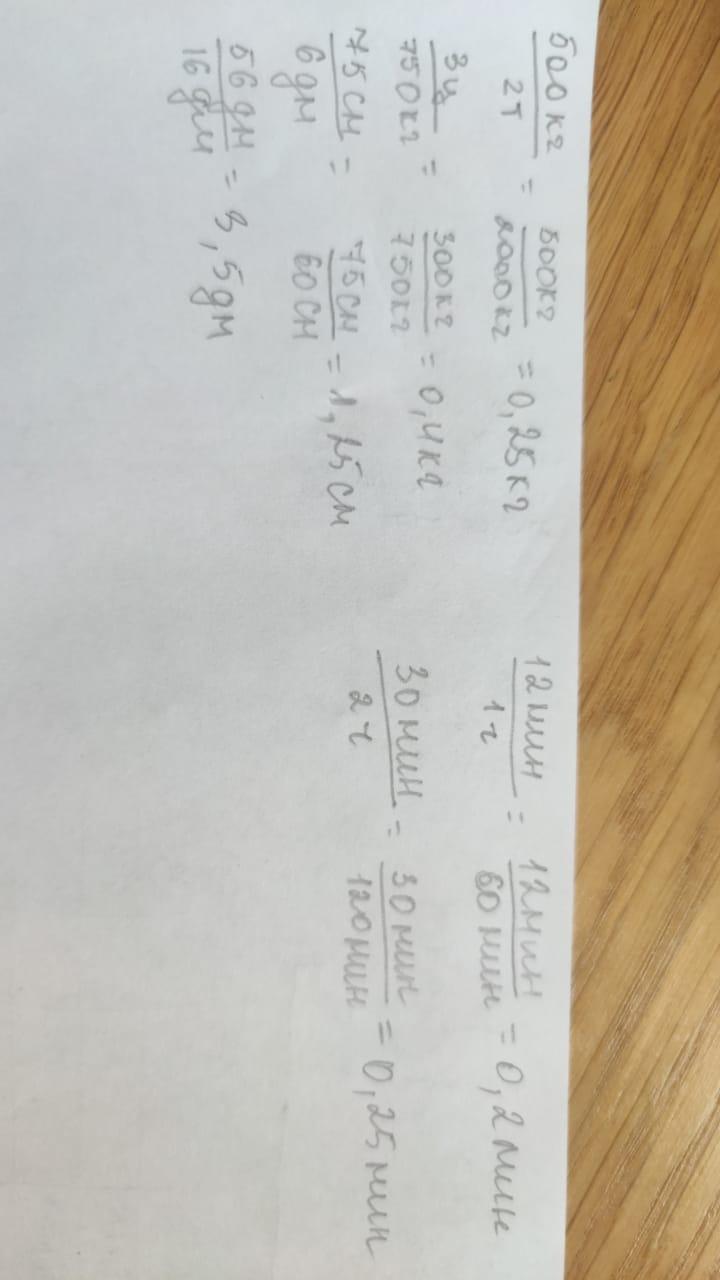 500кг/2т = 500кг/2000кг = 0,25кг
3ц/750кг = 300кг/750кг = 0,4кг
75см/6дм = 75см/60см = 1,25см
56дм/16дм = 3,5дм
12мин/1ч = 12мин/60мин = 0,2мин
30мин/2ч = 30мин/120мин = 0,25мин